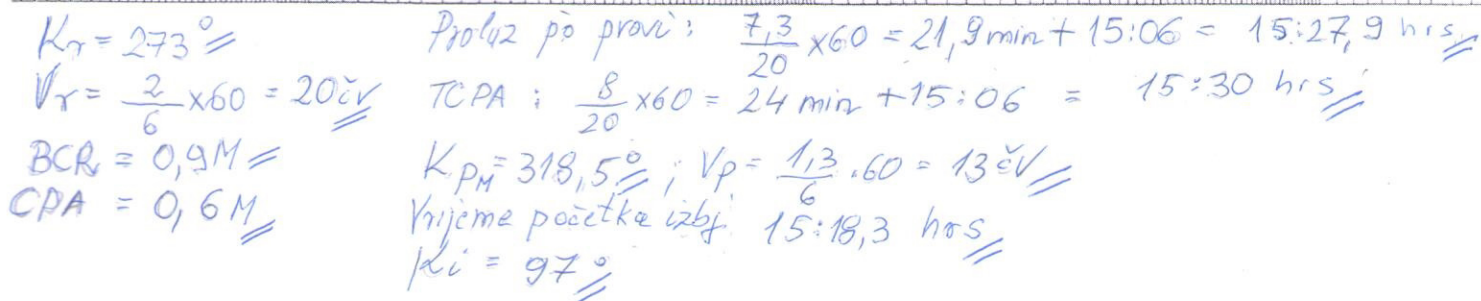 Kr = 273°
Vr = 2/6 x60 = 20čv
BCR = 0,9M
CPA = 0,6M
Prolaz po provi: 7,3/20 x60 = 21,9min + 15:06 = 15:27,9 hrs
TCPA : 8/20 x60 = 24 min +15:06 = 15:30 hrs
KPM = 318,5° ; Vp = 1,3/6 .60 = 13čv
Vrijeme početka izbj. 15:18,3 hrs
Ki = 97°